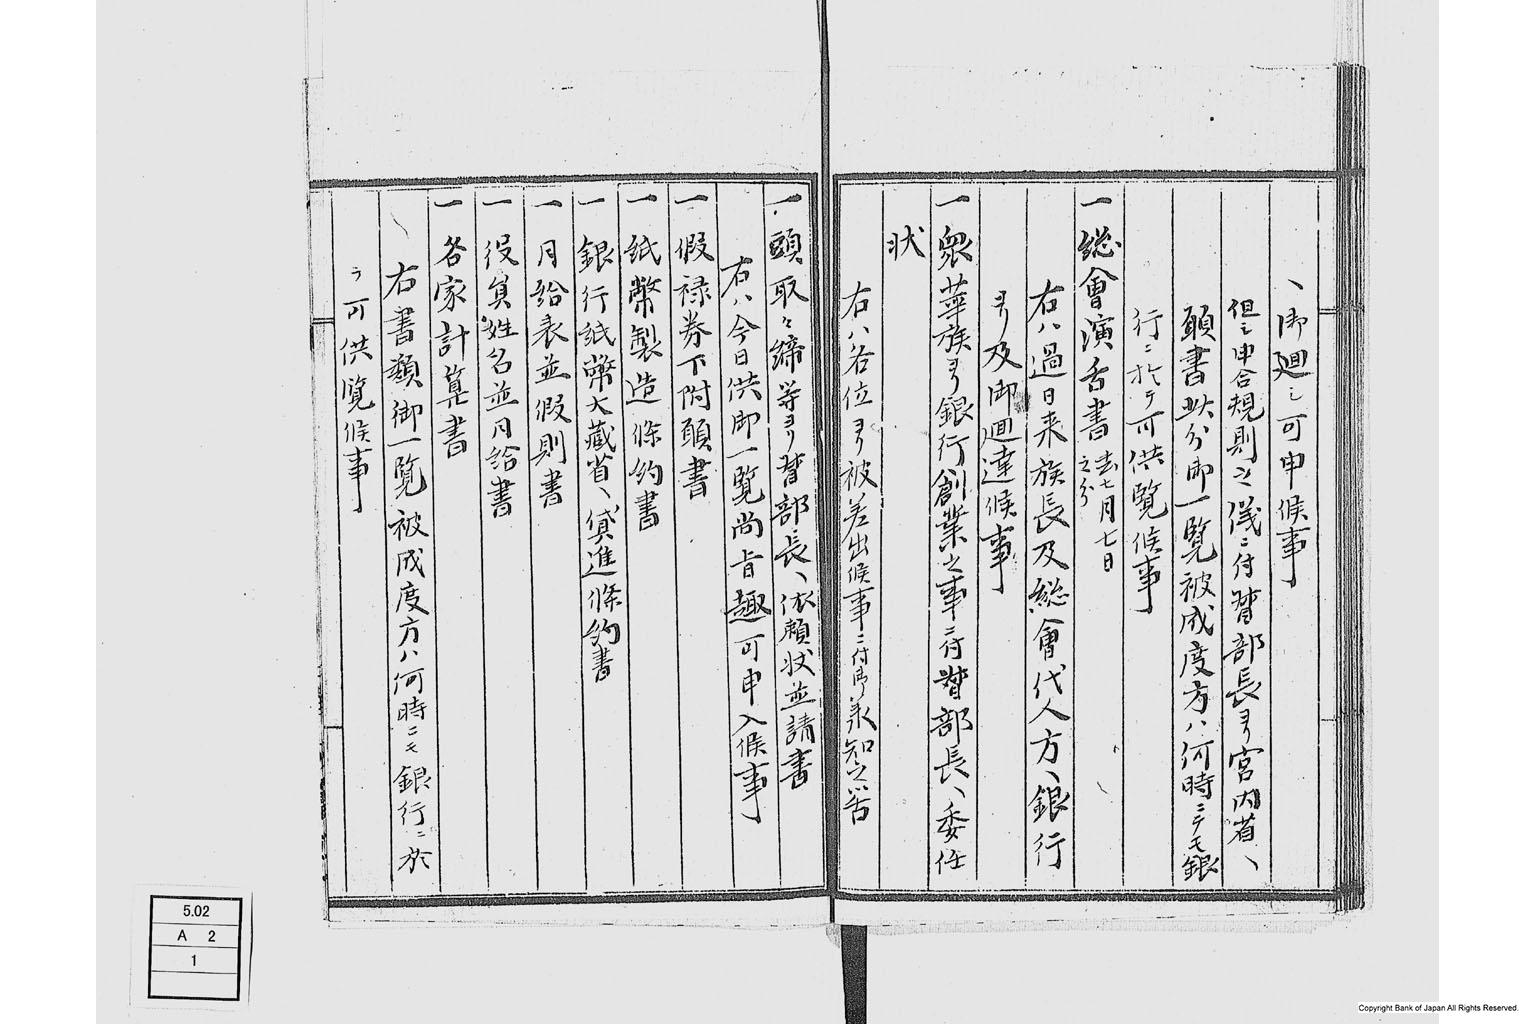 、御廻シ可申候事
但シ申合規則之儀ニ付督部長ヨリ宮内省、
願書此分御一覧被成度方ハ何時ニテモ銀
行ニ於テ可供覧候事
一総會演舌書去七月七日之分
右ハ過日来族長及総會代人方、銀行
ヨリ及御廻達候事
一衆華族ヨリ銀行創業之事ニ付督部長、委任
状
右ハ各位ヨリ被差出候事ニ付御承知之筈
一頭取々締等ヨリ督部長、依頼状並請書
右ハ今日供御一覧尚旨趣可申入候事
一假禄券下附願書
一紙幣製造條約書
一銀行紙幣大藏省、貸進條約書
一月給表並假則書
一役員姓名並月給書
一各家計算書
右書類御一覧被成度方ハ何時ニモ銀行ニ於
テ可供覧候事
5.02
A 2
1
Copyright Bank of Japan All Rights Reserved.